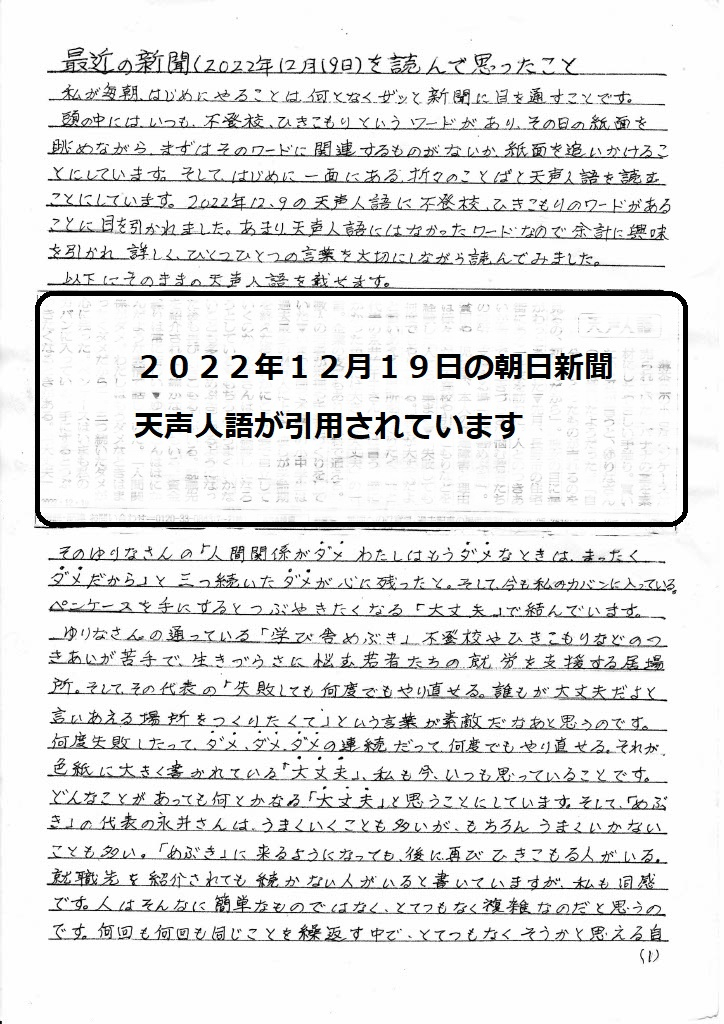 最近の新聞(2022年12月19日)を読んで思ったこと
私が毎朝、はじめにやることは何となくザッと新聞に目を通すことです。
頭の中には、いつも、不登校、ひきこもりというワードがあり、その日の紙面を
眺めながら、まずはそのワードに関連するものがないか、紙面を追いかけるこ
とにしています。そして、はじめに一面にある、折々のことばと天声人語を読む
ことにしています。2022年12.9の天声人語に不登校、ひきこもりのワードがある
ことに目を引かれました。あまり天声人語にはなかったワードなので余計に興味
を引かれ詳しく、ひとつひとつの言葉を大切にしながら読んでみました。
以下にそのままの天声人語を載せます。
天声人語
2022年12月19日の朝日新聞
天声人語が引用されています
そのゆりなさんの「人間関係がダメ わたしはもうダメなときは、まったく
ダメだから」と三つ続いたダメが心に残ったと。そして、今も私のカバンに入っている。
ペンケースを手にするとつぶやきたくなる「大丈夫」で結んでいます。
ゆりなさんの通っている「学び舎めぶき」不登校やひきこもりなどのつ
きあいが苦手で、生きづらさに悩む若者たちの就労を支援する居場
所。そして、その代表の「失敗しても何度でもやり直せる。誰もが大丈夫だよと
言いあえる場所をつくりたくて」という言葉が素敵だなあと思うのです。
何度失敗したって、ダメ、ダメ、ダメの連続だって、何度でもやり直せる。それが、
色紙に大きく書かれている「大丈夫」、私も今、いつも思っていることです。
どんなことがあっても何とかなる「大丈夫」と思うことにしています。そして、「めぶ
き」の代表の永井さんは、うまくいくことも多いが、もちろんうまくいかない
ことも多い。「めぶき」に来るようになっても、後に再びひきこもる人がいる。
就職先を紹介されても続かない人がいると書いていますが、私も同感
です。人はそんなに簡単なものではなく、とてつもなく複雑なのだと思うの
です。何回も何回も同じことを繰返す中で、とてつもなくそうかと思える自
(1)